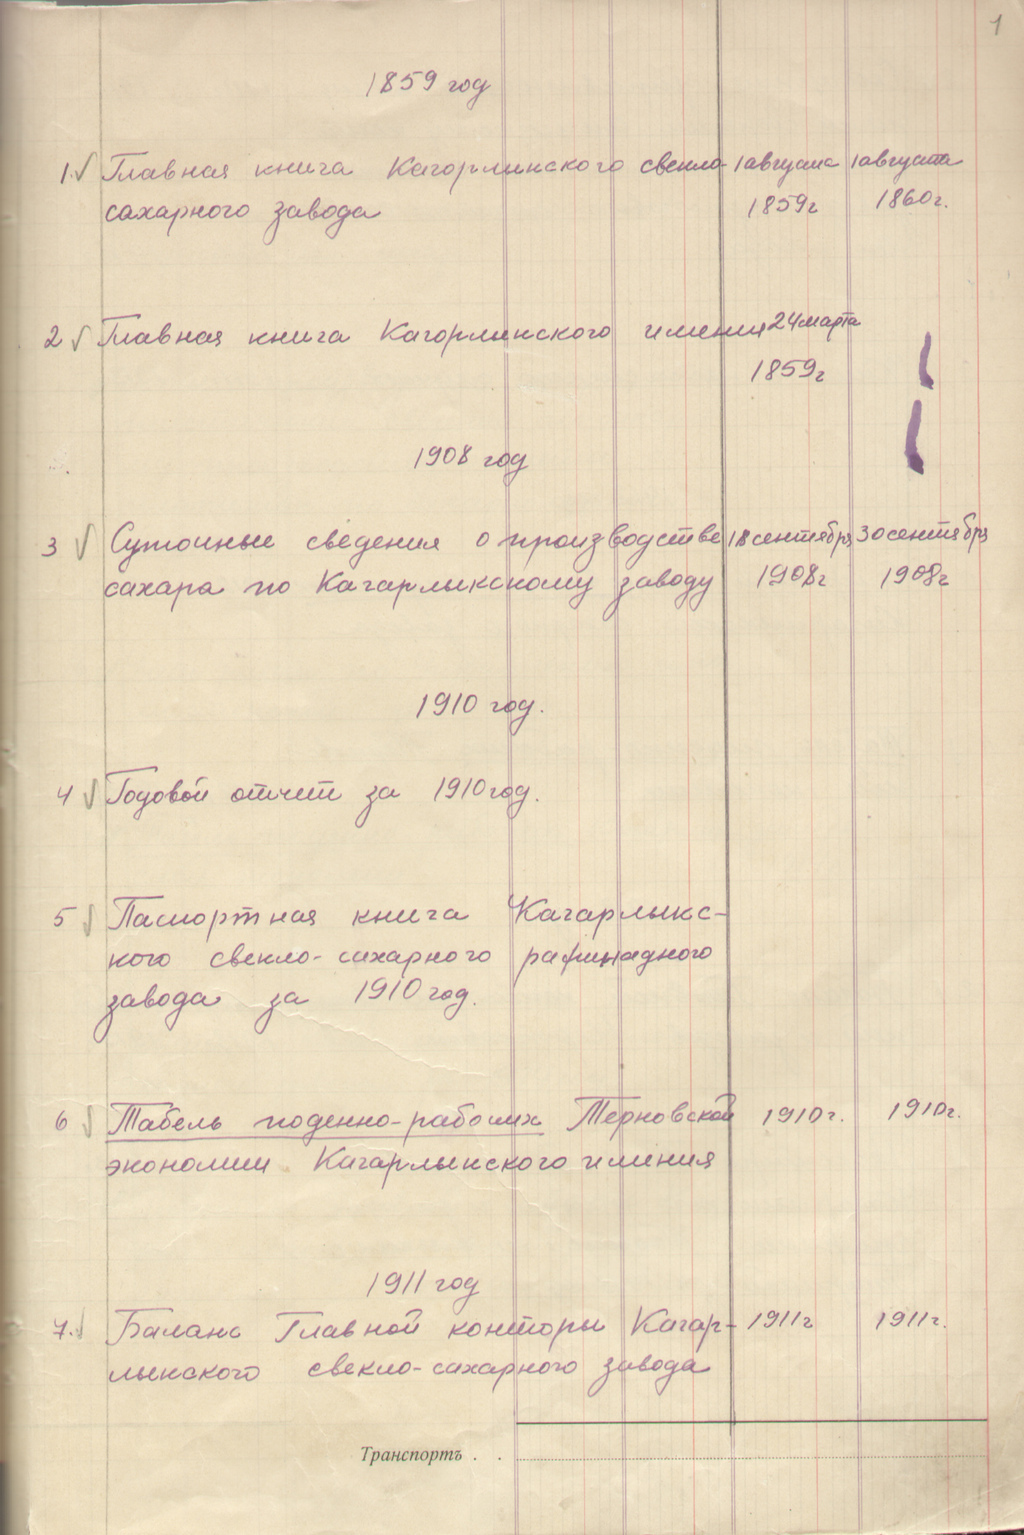 1
1859 год
1. √ Главная книга Кагорлинского свекло- 1 августа 1 августа
сахарного завода 1859г 1860г.
2 √ Главная книга Кагорлынского имения 24 марта
1859г
1908 год
3 √ Суточные сведения о производстве 18 сентября 30 сентября
сахара по Кагарлыкскому заводу 1908г 1908г
1910 год.
4 √ Годовой отчет за 1910 год.
5 √ Паспортная книга Кагарлыкс-
кого свекло-сахарного рафинадного
завода за 1910 год.
6 √ Табель поденно-рабочих Терновской 1910г. 1910г.
экономии Кагарлыкского имения
1911 год
7. √ Баланс Главной конторы Кагар- 1911г 1911г.
лыкского свекло-сахарного завода
Транспортъ . .